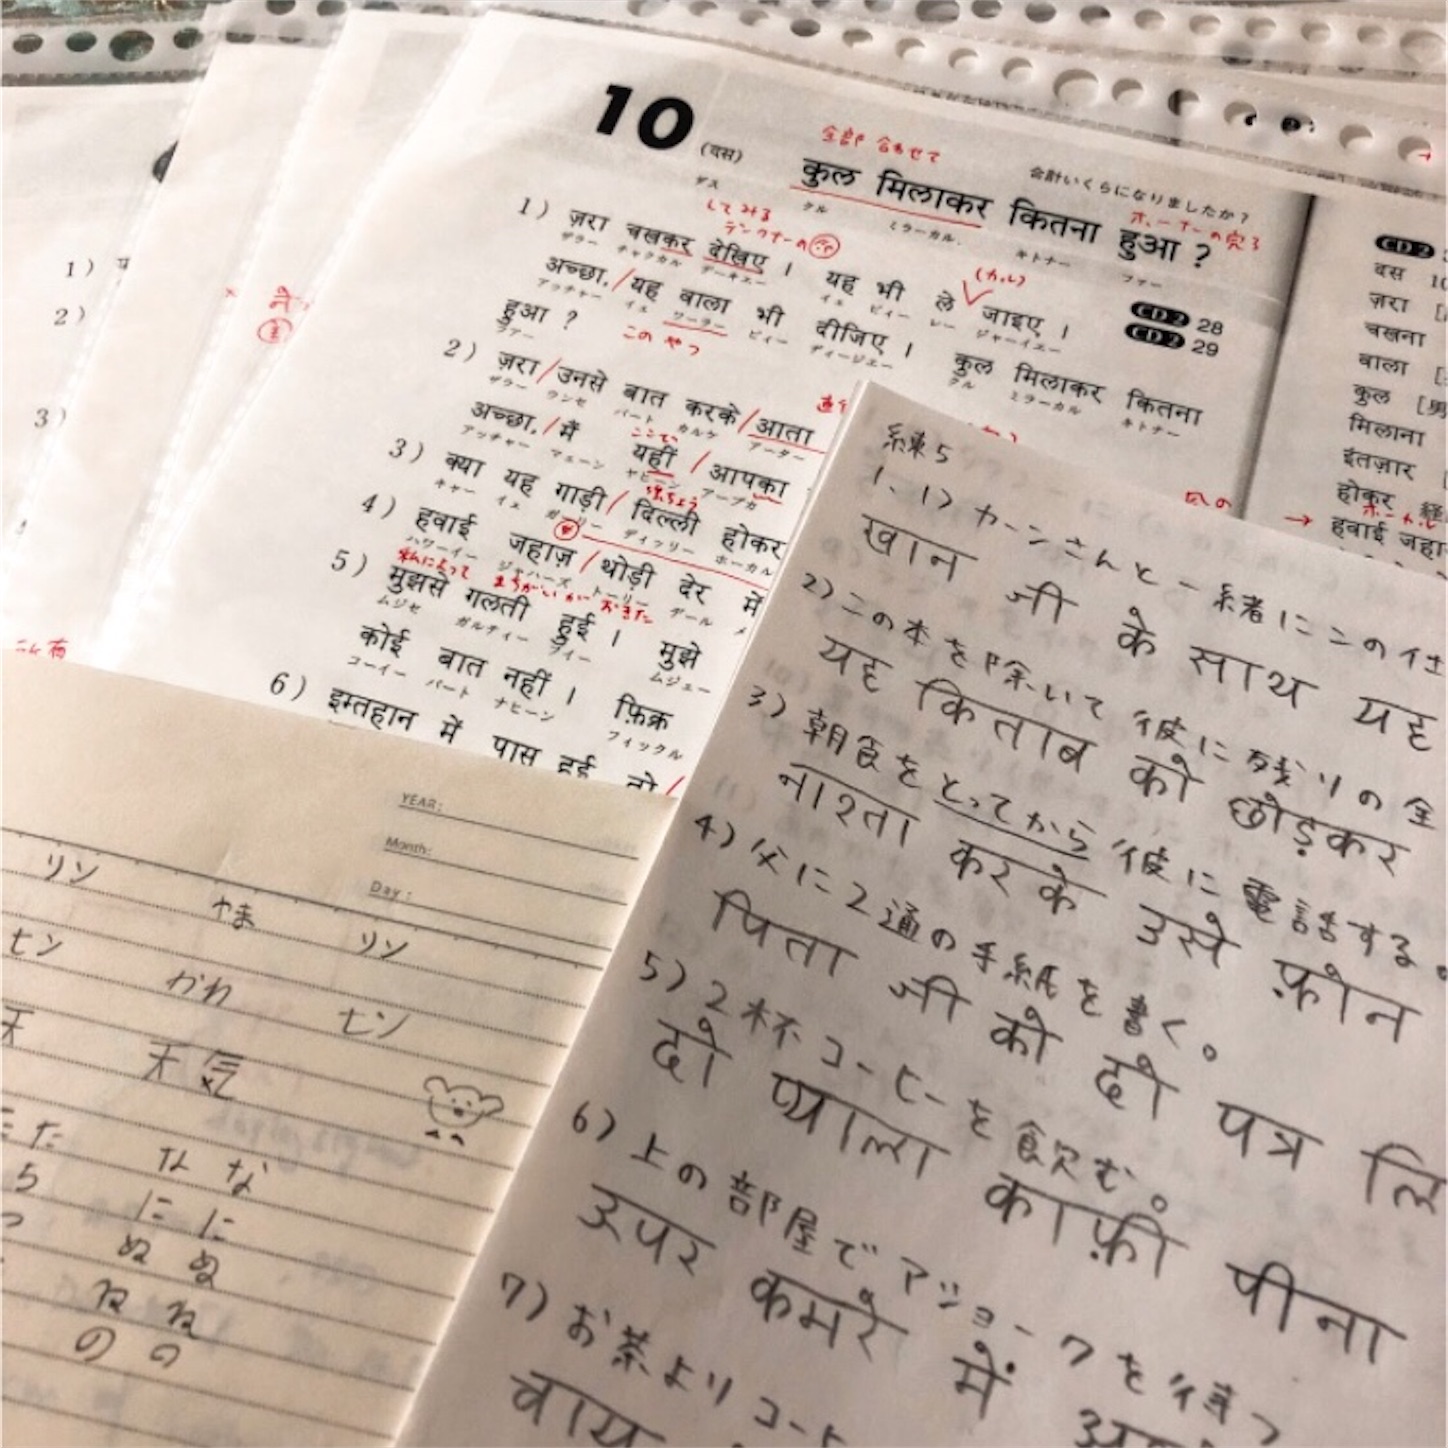 10
(दस)
全部 合わせて
कुल मिलाकर कितना हुआ ?
会計いくらになりましたか？
ダス
クル
ミラーカル
キトナー
フアー
ホーナーの完了
してみる
デークナーの
1) ज़रा चखकर देखिए । यह भी ले जाइए ।
(カル)
ザラー チャクカル デーキエー イェ ビィー レー ジャーイエー
अच्छा, / यह वाला भी दीजिए । कुल मिलाकर कितना
アッチャー イェ ワーラー ビィー ディージエー クル ミラーカル キトナー
हुआ ?
フアー
このやつ
CD 2 28
CD 2 29
2) ज़रा / उनसे बात करके / आता
ザラー ウンセ バート カルケ アーター
अच्छा, / मैं यहीं / आपका
アッチャー マェーン ヤヒーン アープカ
ここで
3) क्या यह गाड़ी / दिल्ली होकर
キャー イェ ガーリー ディッリー ホーカル
4) हवाई जहाज़ / थोड़ी देर में
ハワーイー ジャハーズ トーリー デール メ
私によって まちがいが おきた
5) मुझसे गलती हुई । मुझे
ムジセ ガルティー フイー ムジェー
कोई बात नहीं । फ़िक्र
コーイー バート ナヒーン フィックル
6) इम्तहान में पास हुई तो /
1)
2)
3)
CD 2
दस 10
ज़रा
चखना
वाला
कुल [男
मिलाना
इंतज़ार
होकर
ホーカル
→ हवाई जहा
練5
1、1) カーンさんと一緒にこの仕
खान जी के साथ यह
2) この本を除いて彼に残りの全
यह किताब को छोड़कर
3) 朝食をとってから彼に電話する。
नाश्ता करके उसे फ़ोन
4) 父に2通の手紙を書く。
पिता जी को दो पत्र लि
5) 2杯コーヒーを飲む。
दो प्याला काफ़ी पीना
6) 上の部屋でアショークを待つ
ऊपर कमरे में
7) お茶よりコーヒ
चाय
YEAR:
Month:
Day:
リン やま リン
セン かわ セン
天 天気
た な な
ち に に
つ ぬ ぬ
ね ね
の の